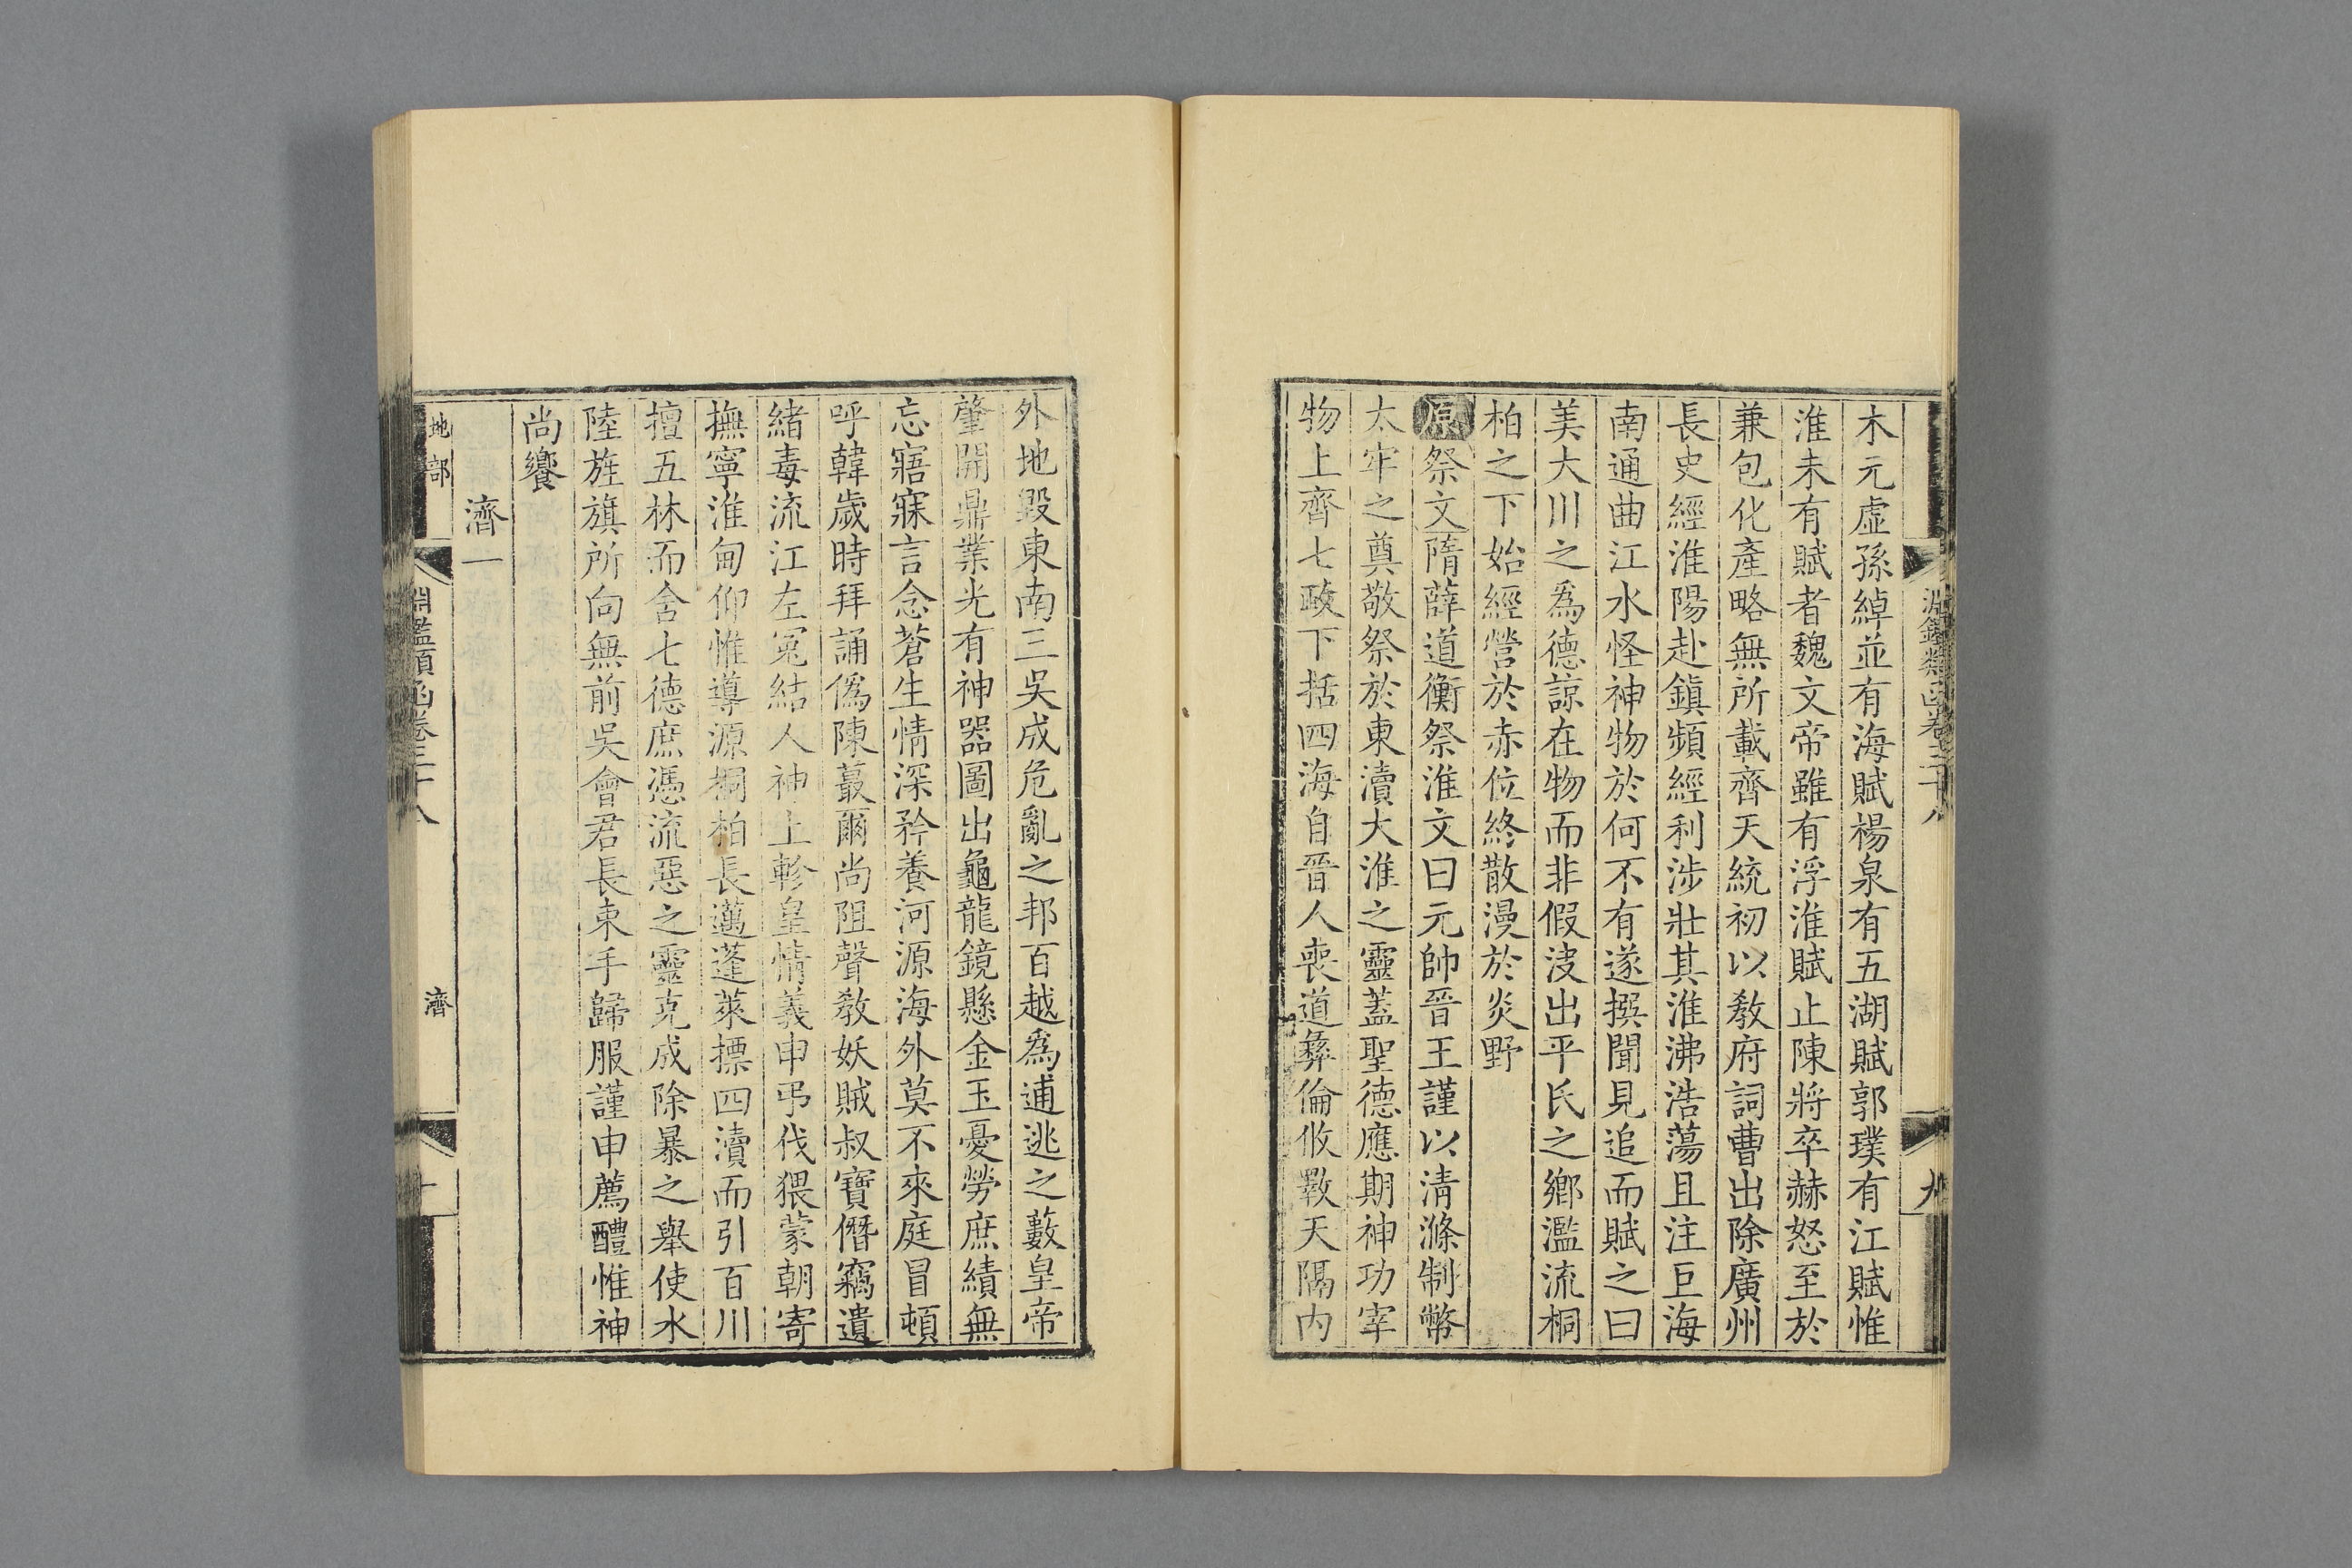 淵鑑類函卷三十八
九
木元虛孫綽並有海賦楊泉有五湖賦郭璞有江賦惟
淮未有賦者魏文帝雖有浮淮賦止陳將卒赫怒至於
兼包化產略無所載齊天統初以教府詞曹出除廣州
長史經淮陽赴鎮頻經利涉壯其淮沸浩蕩且注巨海
南通曲江水怪神物於何不有遂撰聞見追而賦之曰
美大川之爲德諒在物而非假湥出平氏之鄉濫流桐
柏之下始經營於赤位終散漫於炎野
原祭文隋薛道衡祭淮文曰元帥晉王謹以清滌制幣
太牢之奠敬祭於東瀆大淮之靈蓋聖德應期神功宰
物上齊七政下括四海自晉人喪道彝倫攸斁天隔內
外地毀東南三吳成危亂之邦百越爲逋逃之藪皇帝
肇開鼎業光有神器圖出龜龍鏡懸金玉憂勞庶績無
忘寤寐言念蒼生情深矜養河源海外莫不來庭冒頓
呼韓歲時拜誦僞陳蕞爾尚阻聲教妖賊叔寶僭竊遺
緒毒流江左冤結人神上軫皇情義申弔伐猥蒙朝寄
撫寧淮甸仰惟導源桐柏長邁蓬萊摽四瀆而引百川
擅五林而含七德庶憑流惡之靈克成除暴之舉使水
陸旌旗所向無前吳會君長束手歸服謹申薦醴惟神
尚饗
濟一
地部
淵鑑類函卷三十八
濟
十